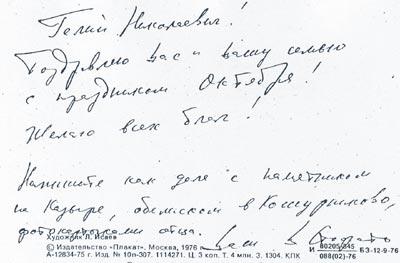 Гелий Николаевич!
Поздравляю вас и вашу семью
с праздником Октября!
Желаю всех благ!
Напишите как дела с памятником
на Кадыре, обелиском в Кошурниково,
фотокарточками отца.
Художник Л. Исаев
© Издательство «Плакат», Москва, 1976
А-12834-75 г. Изд. № 10п-307. 1114271. Ц. 3 коп. Т. 4 млн. З. 1304. КПК
Ваш В.
И 80205-245 БЗ-12-9-76
088(02)-76